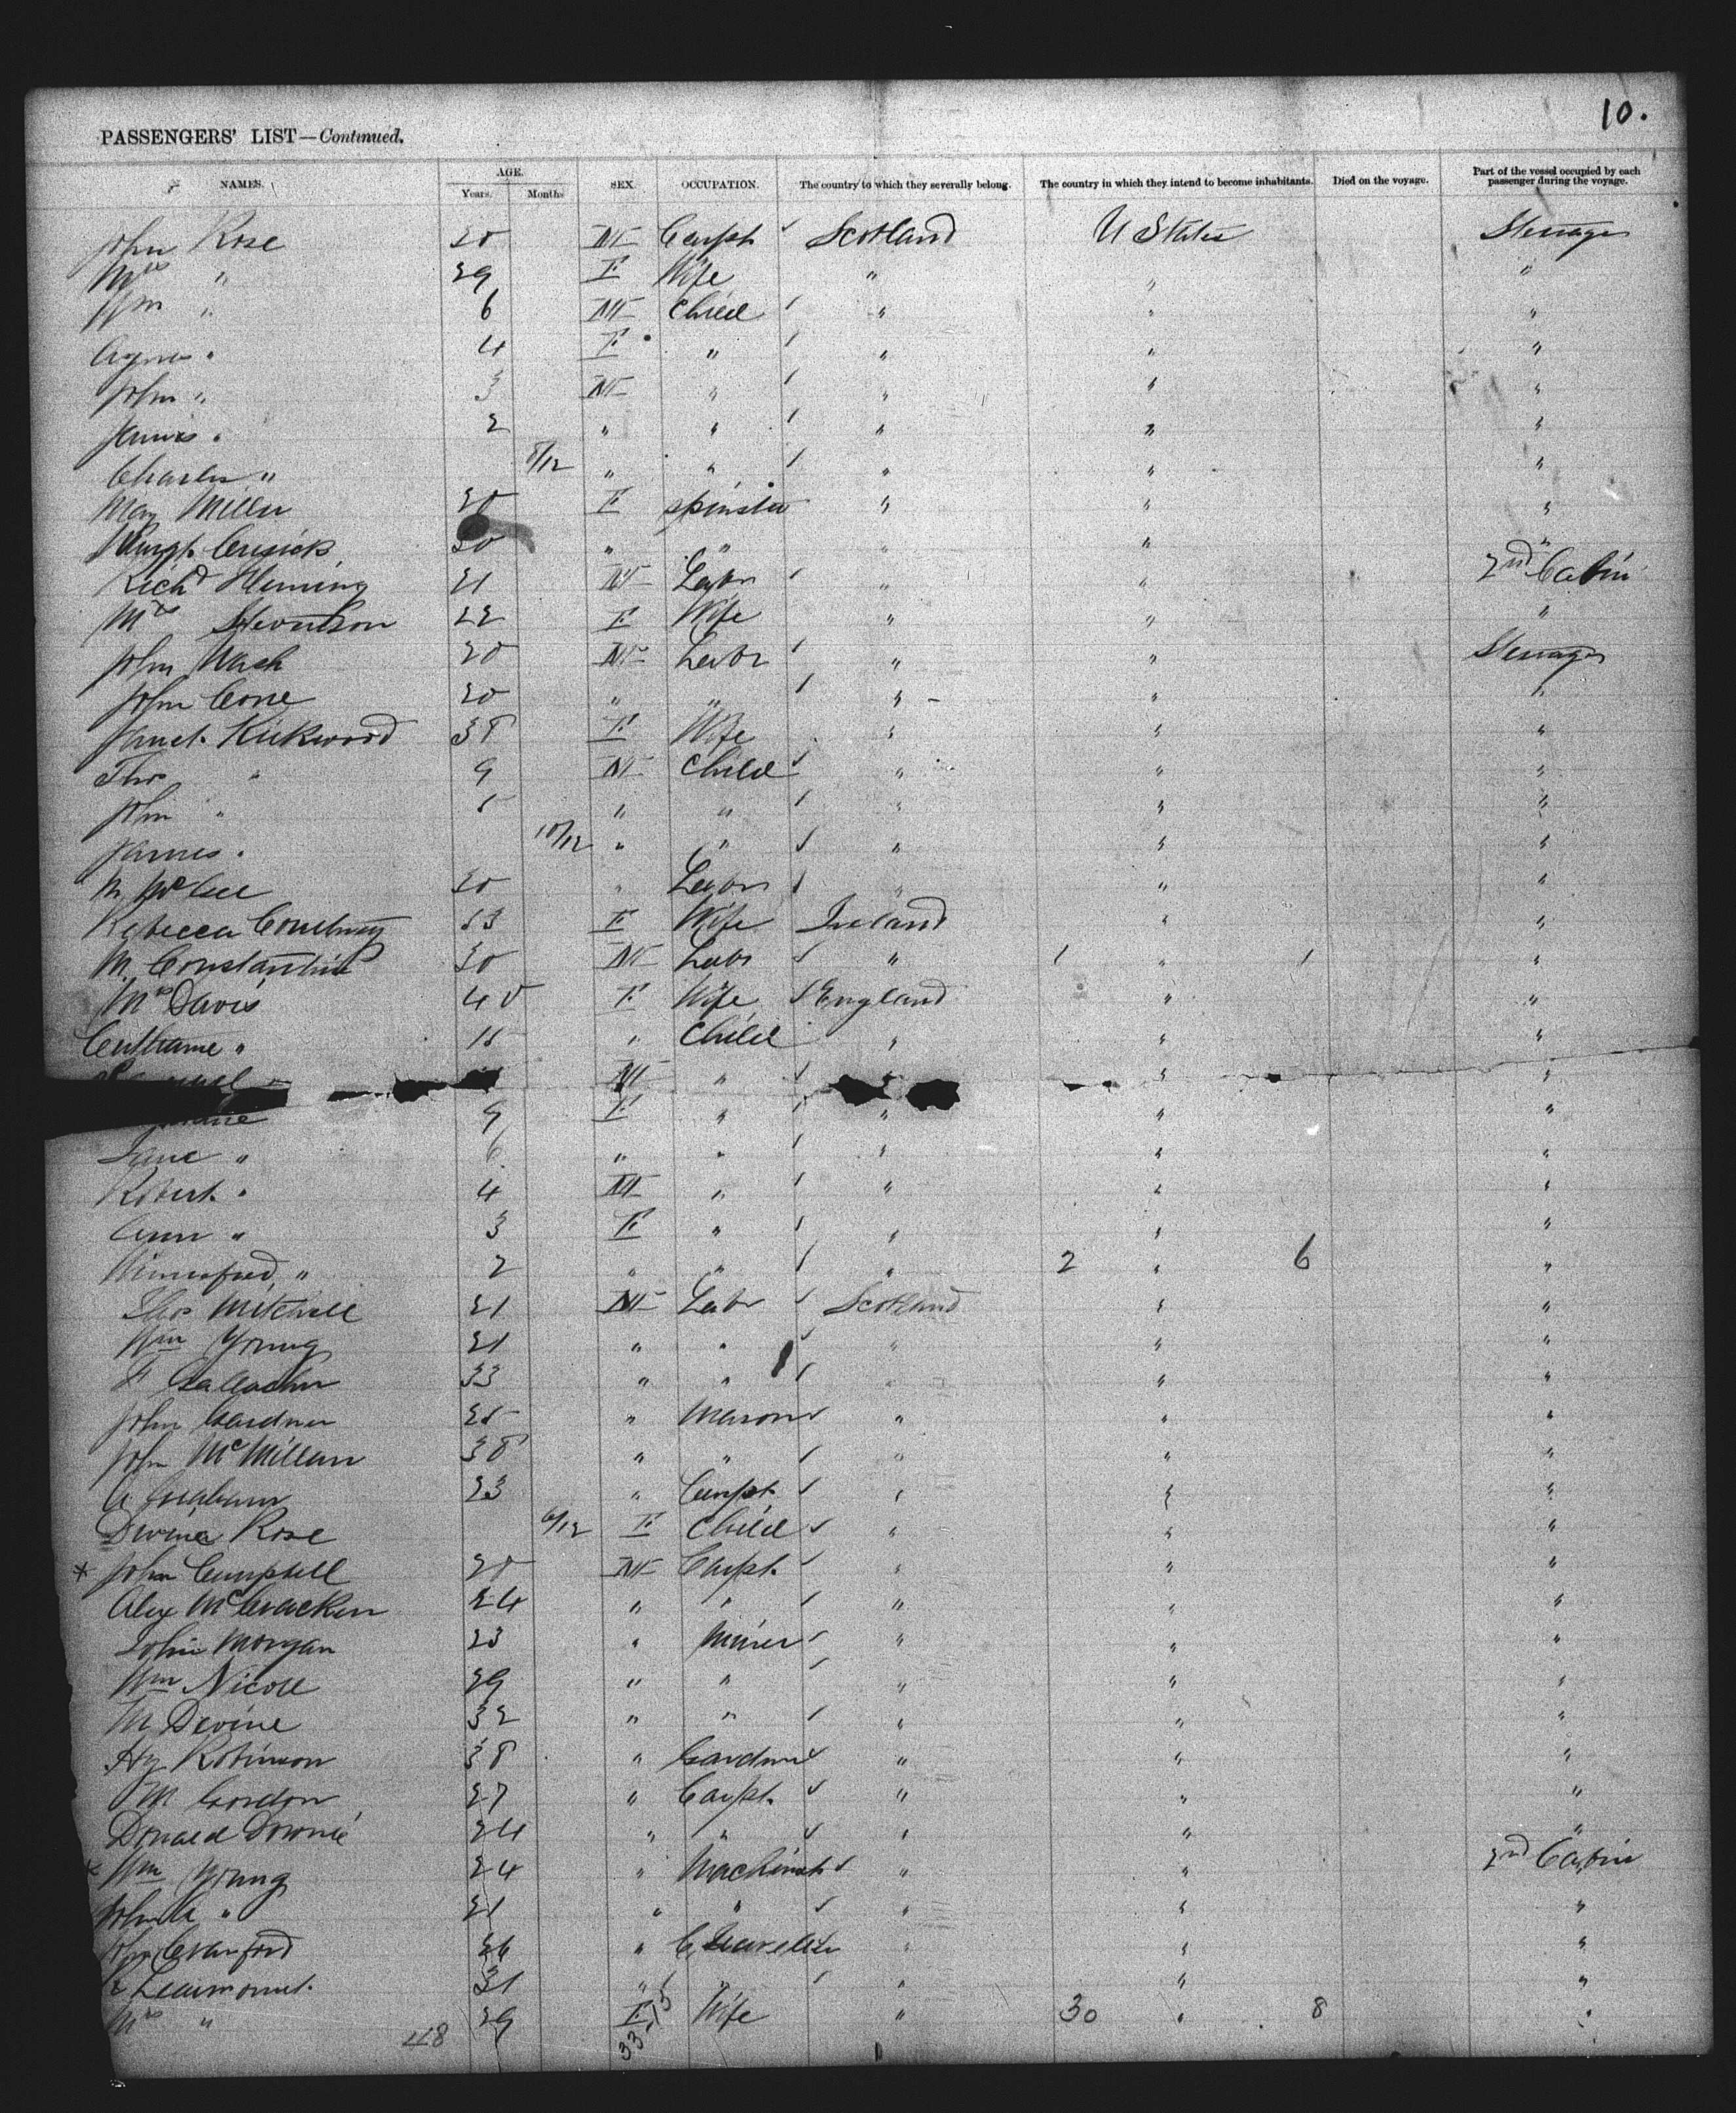 10.
PASSENGERS' LIST—Continued.
NAMES. AGE. Years. Months SEX. OCCUPATION. The country to which they severally belong. The country in which they intend to become inhabitants. Died on the voyage. Part of the vessel occupied by each passenger during the voyage.
John Rose M Carpt Scotland U States Steerage
Mrs " 29 F Wife " " "
Wm " 6 M Child " " "
Agnes " 4 F " " " "
John " 3 M " " " "
James " 2 " " " " "
Charles " 8/12 " " " " "
May Miller F spinster " " "
Cusick " " " " "
Richd Fleming 21 M Labr " " 2nd Cabin
Mrs Stevenson 22 F Wife " " "
John M Labr " " Steerage
John " " " " "
Janet Kirkwood 38 F Wife " " "
Thos " 9 M Child " " "
John " 5 " " " " "
James " 10/12 " " " " "
" Labr " " "
Rebecca Courtney 53 F Wife Ireland " "
M. Constantine 30 M Labr " 1 " 1 "
Mrs Davis 40 F Wife England " "
" 15 " Child " " "
M " " " "
9 F " " " "
Jane " 6 " " " " "
Robert " 4 M " " " "
Ann " 3 F " " " "
Winnifred " 2 " " " 2 " 6 "
Thos Mitchell 21 M Labr Scotland " "
Wm Young 21 " " " " "
F Gallacher 33 " " " " "
John Gardner 25 " Mason " " "
John McMillan 38 " " " " "
A Graham 23 " Carpt " " "
Divina Rose 6/12 F Child " " "
* John Campbell M Carpt " " "
Alex McCracken 24 " " " " "
John Morgan 23 " Miner " " "
Wm Nicoll 29 " " " " "
M Devine 32 " " " " "
Hy Robinson 38 " Gardner " " "
M Gordon 27 " Carpt. " " "
Donald Downie 24 " " " " "
* Wm Young 24 " Machinist " " 2nd Cabin
John A " 21 " " " " "
Jno Crawford 26 " C Traveller " " "
Learmount. 31 " " " " "
Mrs " 29 F Wife " 30 " 8 "
48 33-15